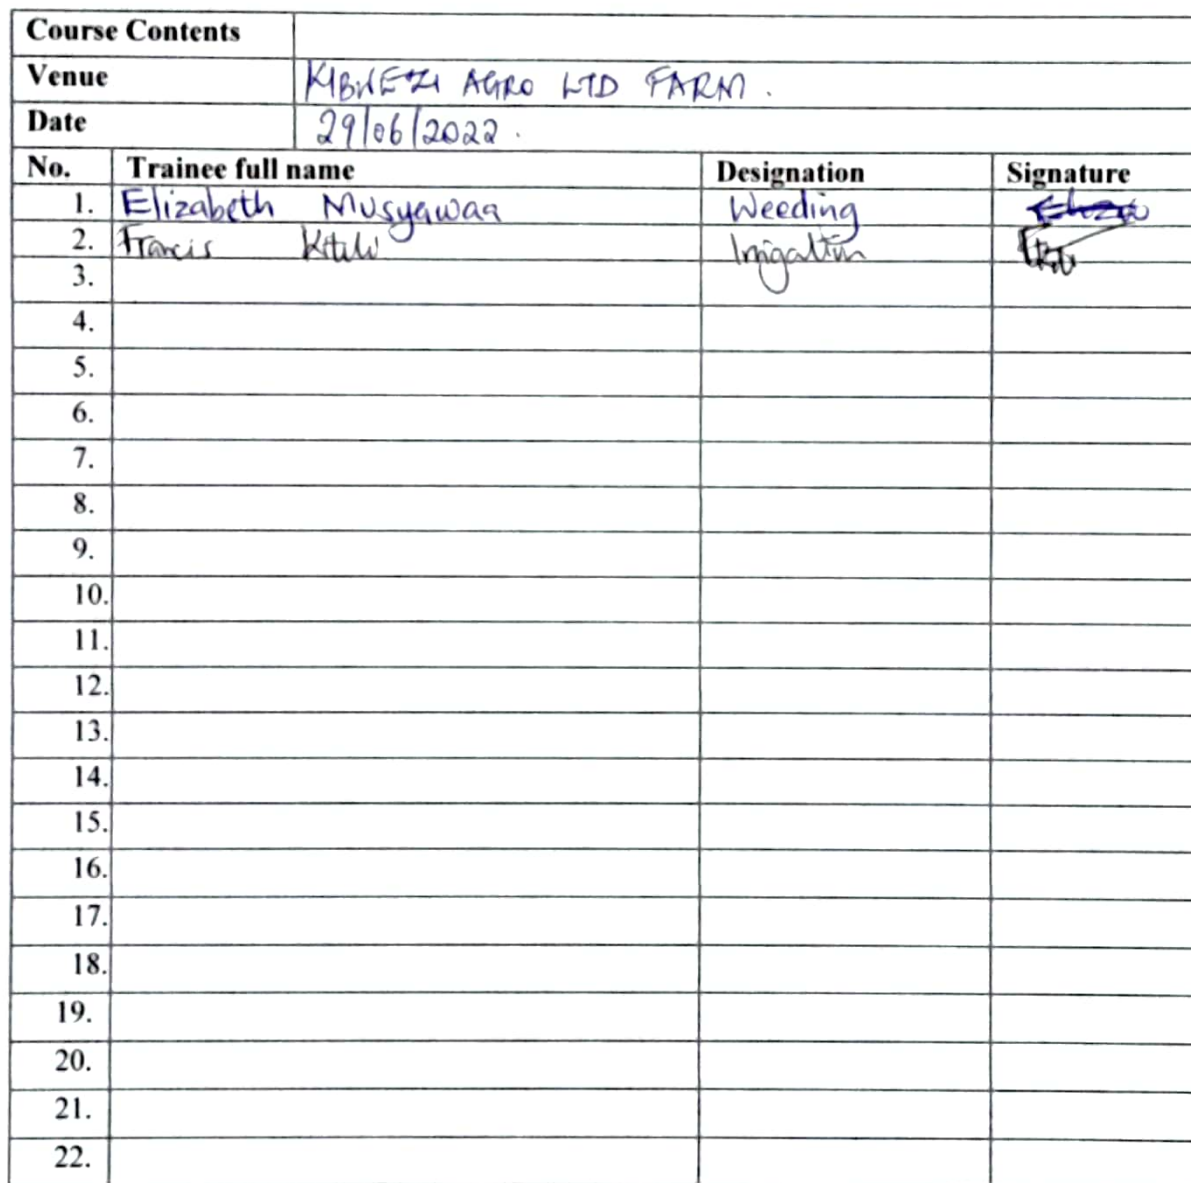 Course Contents
Venue KIBWEZI AGRO LTD FARM.
Date 29/06/2022.
No. Trainee full name Designation Signature
1. Elizabeth Musyawaa Weeding
2. Francis Kitili Irrigation
3.
4.
5.
6.
7.
8.
9.
10.
11.
12.
13.
14.
15.
16.
17.
18.
19.
20.
21.
22.